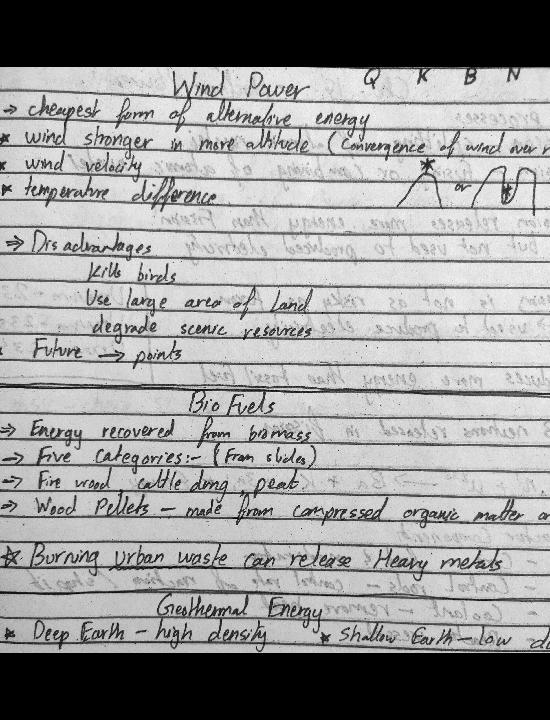 Q K B N
Wind Power
⇒ cheapest form of alternative energy
* wind stronger in more altitude (Convergence of wind over
* wind velocity
* temperature difference
or
⇒ Disadvantages
Kills birds
Use large area of Land
degrade scenic resources
Future → points
Bio Fuels
⇒ Energy recovered from biomass
→ Five Categories:- (From slides)
→ Fire wood, cattle dung, peat
⇒ Wood Pellets - made from compressed organic matter or
* Burning urban waste can release Heavy metals
Geothermal Energy
* Deep Earth - high density * Shallow Earth - low